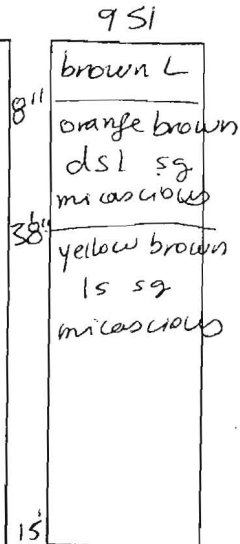 9 SI
brown L
8"
orange brown
dsl sg
micascious
38"
yellow brown
ls sg
micascious
15'